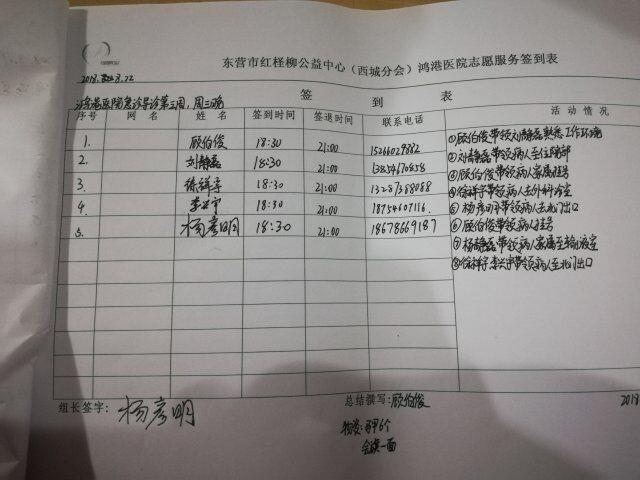 东营市红柽柳公益中心（西城分会）鸿港医院志愿服务签到表
2018.8.22
鸿港医院急诊导诊第三周，周三晚
签 到 表
序号 网 名 姓 名 签到时间 签退时间 联系电话 活 动 情 况
1. 顾伯俊 18:30 21:00 15266029882
2. 刘静磊 18:30 21:00 13854670858
3. 徐祥宇 18:30 21:00 13287388088
4. 李兴宇 18:30 21:00 18754607116.
5. 杨彦明 18:30 21:00 18678669187
①顾伯俊带领刘静磊熟悉工作环境
②刘静磊带领病人至住院部
④顾伯俊带领病人家属挂号
④徐祥宇带领病人去外科诊室
⑤杨彦明带领病人去北门出口
⑥顾伯俊带领病人挂号
⑦杨静磊带领病人家属至输液室
⑧徐祥宇李兴宇带领病人至北门出口
组长签字: 杨彦明
总结撰写: 顾伯俊
2018
物资: 马甲6个
会旗一面